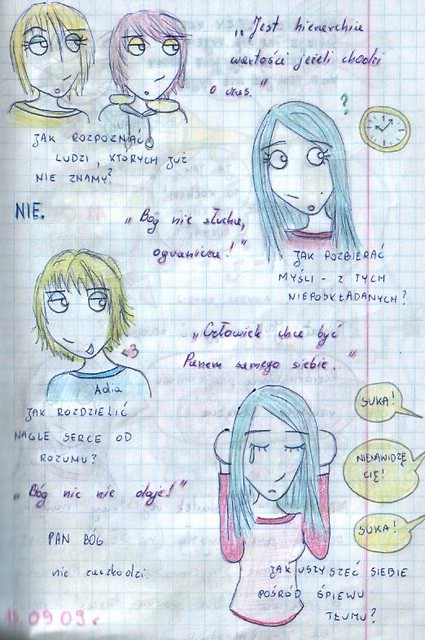 „Jest hierarchia
wartości jeżeli chodzi
o czas."
?
JAK ROZPOZNAĆ
LUDZI, KTÓRYCH JUŻ
NIE ZNAMY?
NIE.
„Bóg nie słucha,
ogranicza!"
JAK POZBIERAĆ
MYŚLI - Z TYCH
NIEPOSKŁADANYCH?
„Człowiek chce być
Panem samego siebie."
Adia
JAK ROZDZIELIĆ
NAGLE SERCE OD
ROZUMU?
SUKA!
NIENAWIDZĘ
CIĘ!
SUKA!
„Bóg nic nie daje!"
PAN BÓG
nie zaszkodzi.
JAK USZYSZEĆ SIEBIE
POŚRÓD ŚPIEWU
TŁUMU?
09 09 r